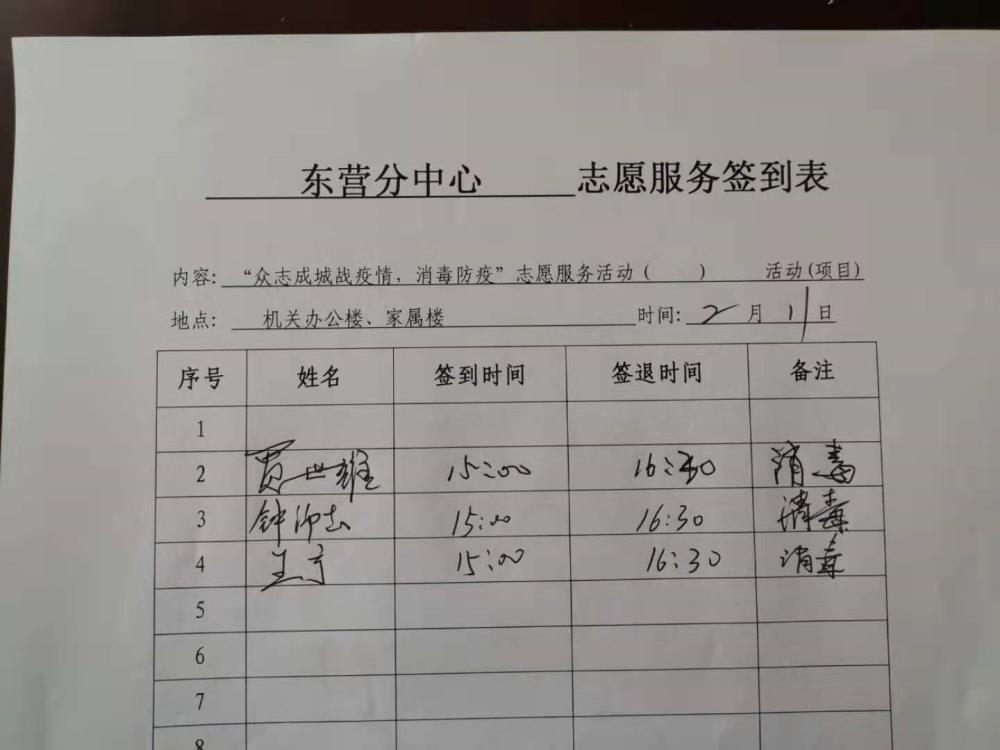 东营分中心 志愿服务签到表
内容: “众志成城战疫情，消毒防疫”志愿服务活动 ( ) 活动(项目)
地点: 机关办公楼、家属楼 时间: 2 月 11 日
序号 姓名 签到时间 签退时间 备注
1
2 贾世雄 15:00 16:30 消毒
3 钟 15:00 16:30 消毒
4 王 15:00 16:30 消毒
5
6
7
8